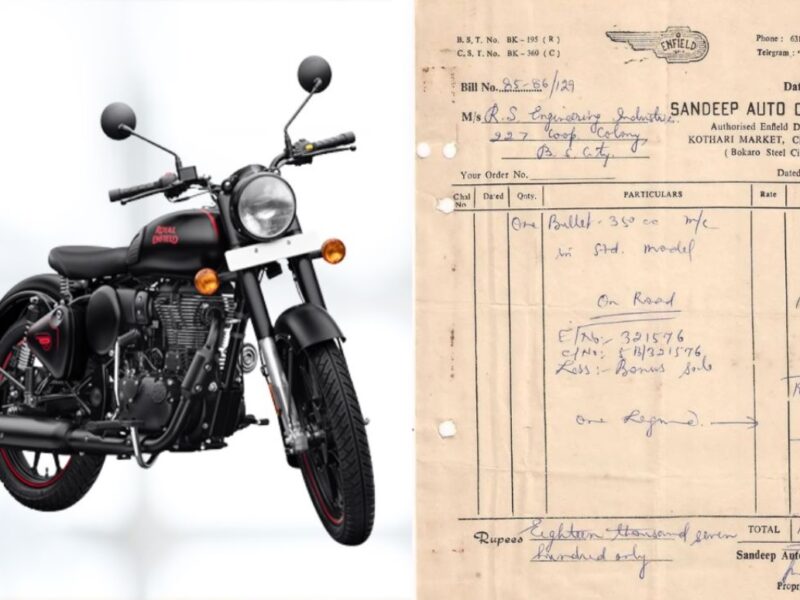 ROYAL
ENFIELD
B. S. T. No. BK-195 ( R )
C. S. T. No. BK-360 ( C )
ENFIELD
Phone : 631
Telegram :
Bill No. 85-86/129
Dat
M/s R.S. Engineering Industries.
SANDEEP AUTO C
227 Coop Colony,
Authorised Enfield D
B. S. City.
KOTHARI MARKET, C
( Bokaro Steel Ci
Your Order No.
Dated
Chal No
Da'ed
Qnty.
PARTICULARS
Rate
One Bullet - 350 cc m/c
in Std. model
On Road
E/No:- 321576
C/No: 5 B/321576
Less :- Bonus
One
Rupees Eighteen thousand seven
hundred only
TOTAL
Sandeep Auto
Propr